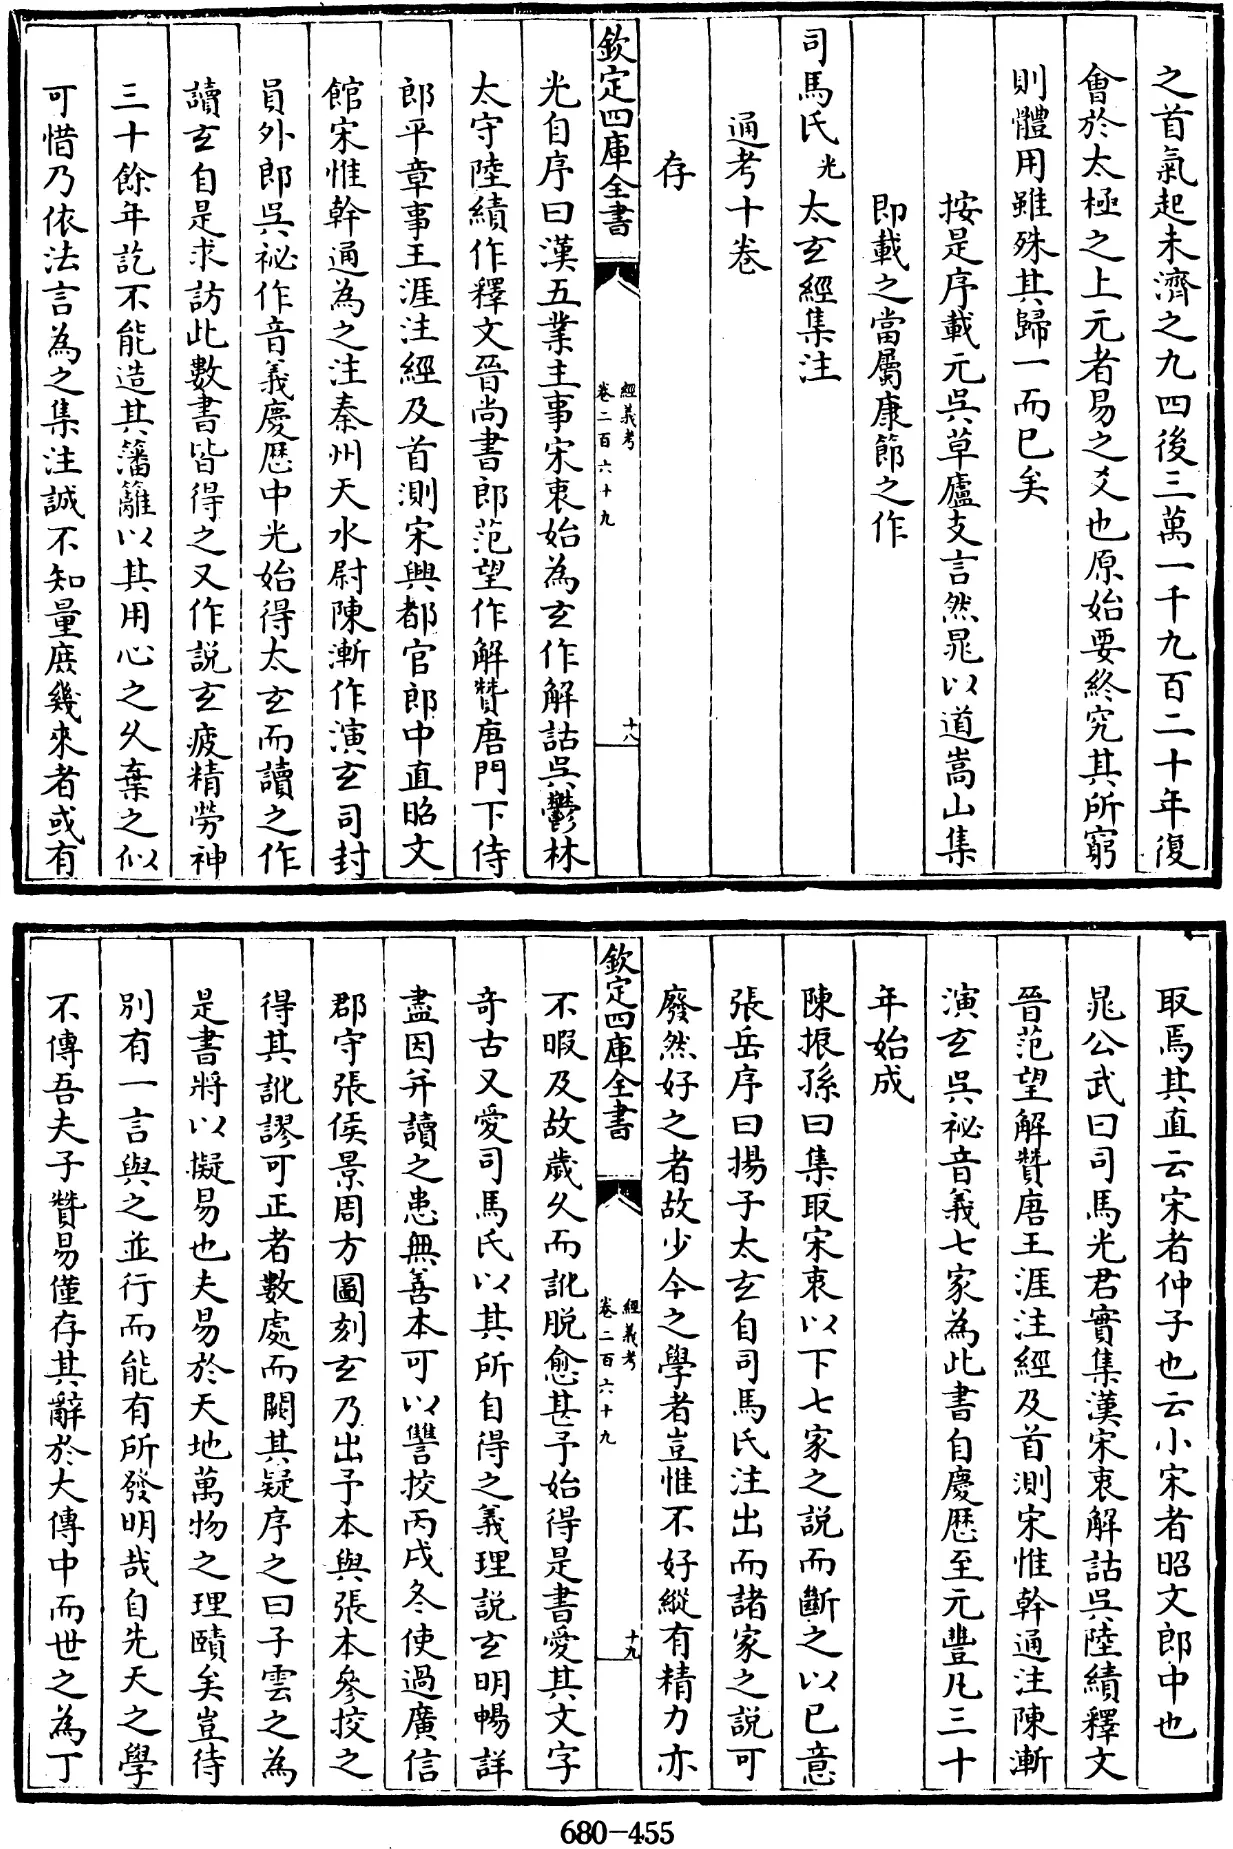 之首氣起未濟之九四後三萬一千九百二十年復
會於太極之上元者易之爻也原始要終究其所窮
則體用雖殊其歸一而已矣
按是序載元吳草廬支言然晁以道嵩山集
即載之當屬康節之作
司馬氏光太玄經集注
通考十卷
存
欽定四庫全書
經義考
卷二百六十九
十八
光自序曰漢五業主事宋衷始為玄作解詁吳鬱林
太守陸績作釋文晉尚書郎范望作解贊唐門下侍
郎平章事王涯注經及首測宋興都官郎中直昭文
館宋惟幹通為之注秦州天水尉陳漸作演玄司封
員外郎吳祕作音義慶歷中光始得太玄而讀之作
讀玄自是求訪此數書皆得之又作說玄疲精勞神
三十餘年訖不能造其藩籬以其用心之久棄之似
可惜乃依法言為之集注誠不知量庶幾來者或有
取焉其直云宋者仲子也云小宋者昭文郎中也
晁公武曰司馬光君實集漢宋衷解詁吳陸績釋文
晉范望解贊唐王涯注經及首測宋惟幹通注陳漸
演玄吳祕音義七家為此書自慶歷至元豐凡三十
年始成
陳振孫曰集取宋衷以下七家之說而斷之以已意
張岳序曰揚子太玄自司馬氏注出而諸家之說可
廢然好之者故少今之學者豈惟不好縱有精力亦
欽定四庫全書
經義考
卷二百六十九
十九
不暇及故歲久而訛脫愈甚予始得是書愛其文字
奇古又愛司馬氏以其所自得之義理說玄明暢詳
盡因并讀之患無善本可以讐挍丙戌冬使過廣信
郡守張侯景周方圖刻玄乃出予本與張本參挍之
得其訛謬可正者數處而闕其疑序之曰子雲之為
是書將以擬易也夫易於天地萬物之理賾矣豈待
別有一言與之並行而能有所發明哉自先天之學
不傳吾夫子贊易僅存其辭於大傳中而世之為丁
680-455